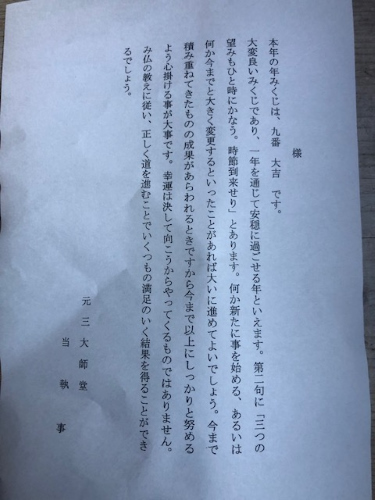 様
本年の年みくじは、九番　大吉　です。
大変良いみくじであり、一年を通じて安穏に過ごせる年といえます。第二句に「三つの
望みもひと時にかなう。時節到来せり」とあります。何か新たに事を始める、あるいは
何か今までと大きく変更するといったことがあれば大いに進めてよいでしょう。今まで
積み重ねてきたものの成果があらわれるときですから今まで以上にしっかりと努める
よう心掛ける事が大事です。幸運は決して向こうからやってくるものではありません。
み仏の教えに従い、正しく道を進むことでいくつもの満足のいく結果を得ることができ
るでしょう。
元三大師堂
当執事